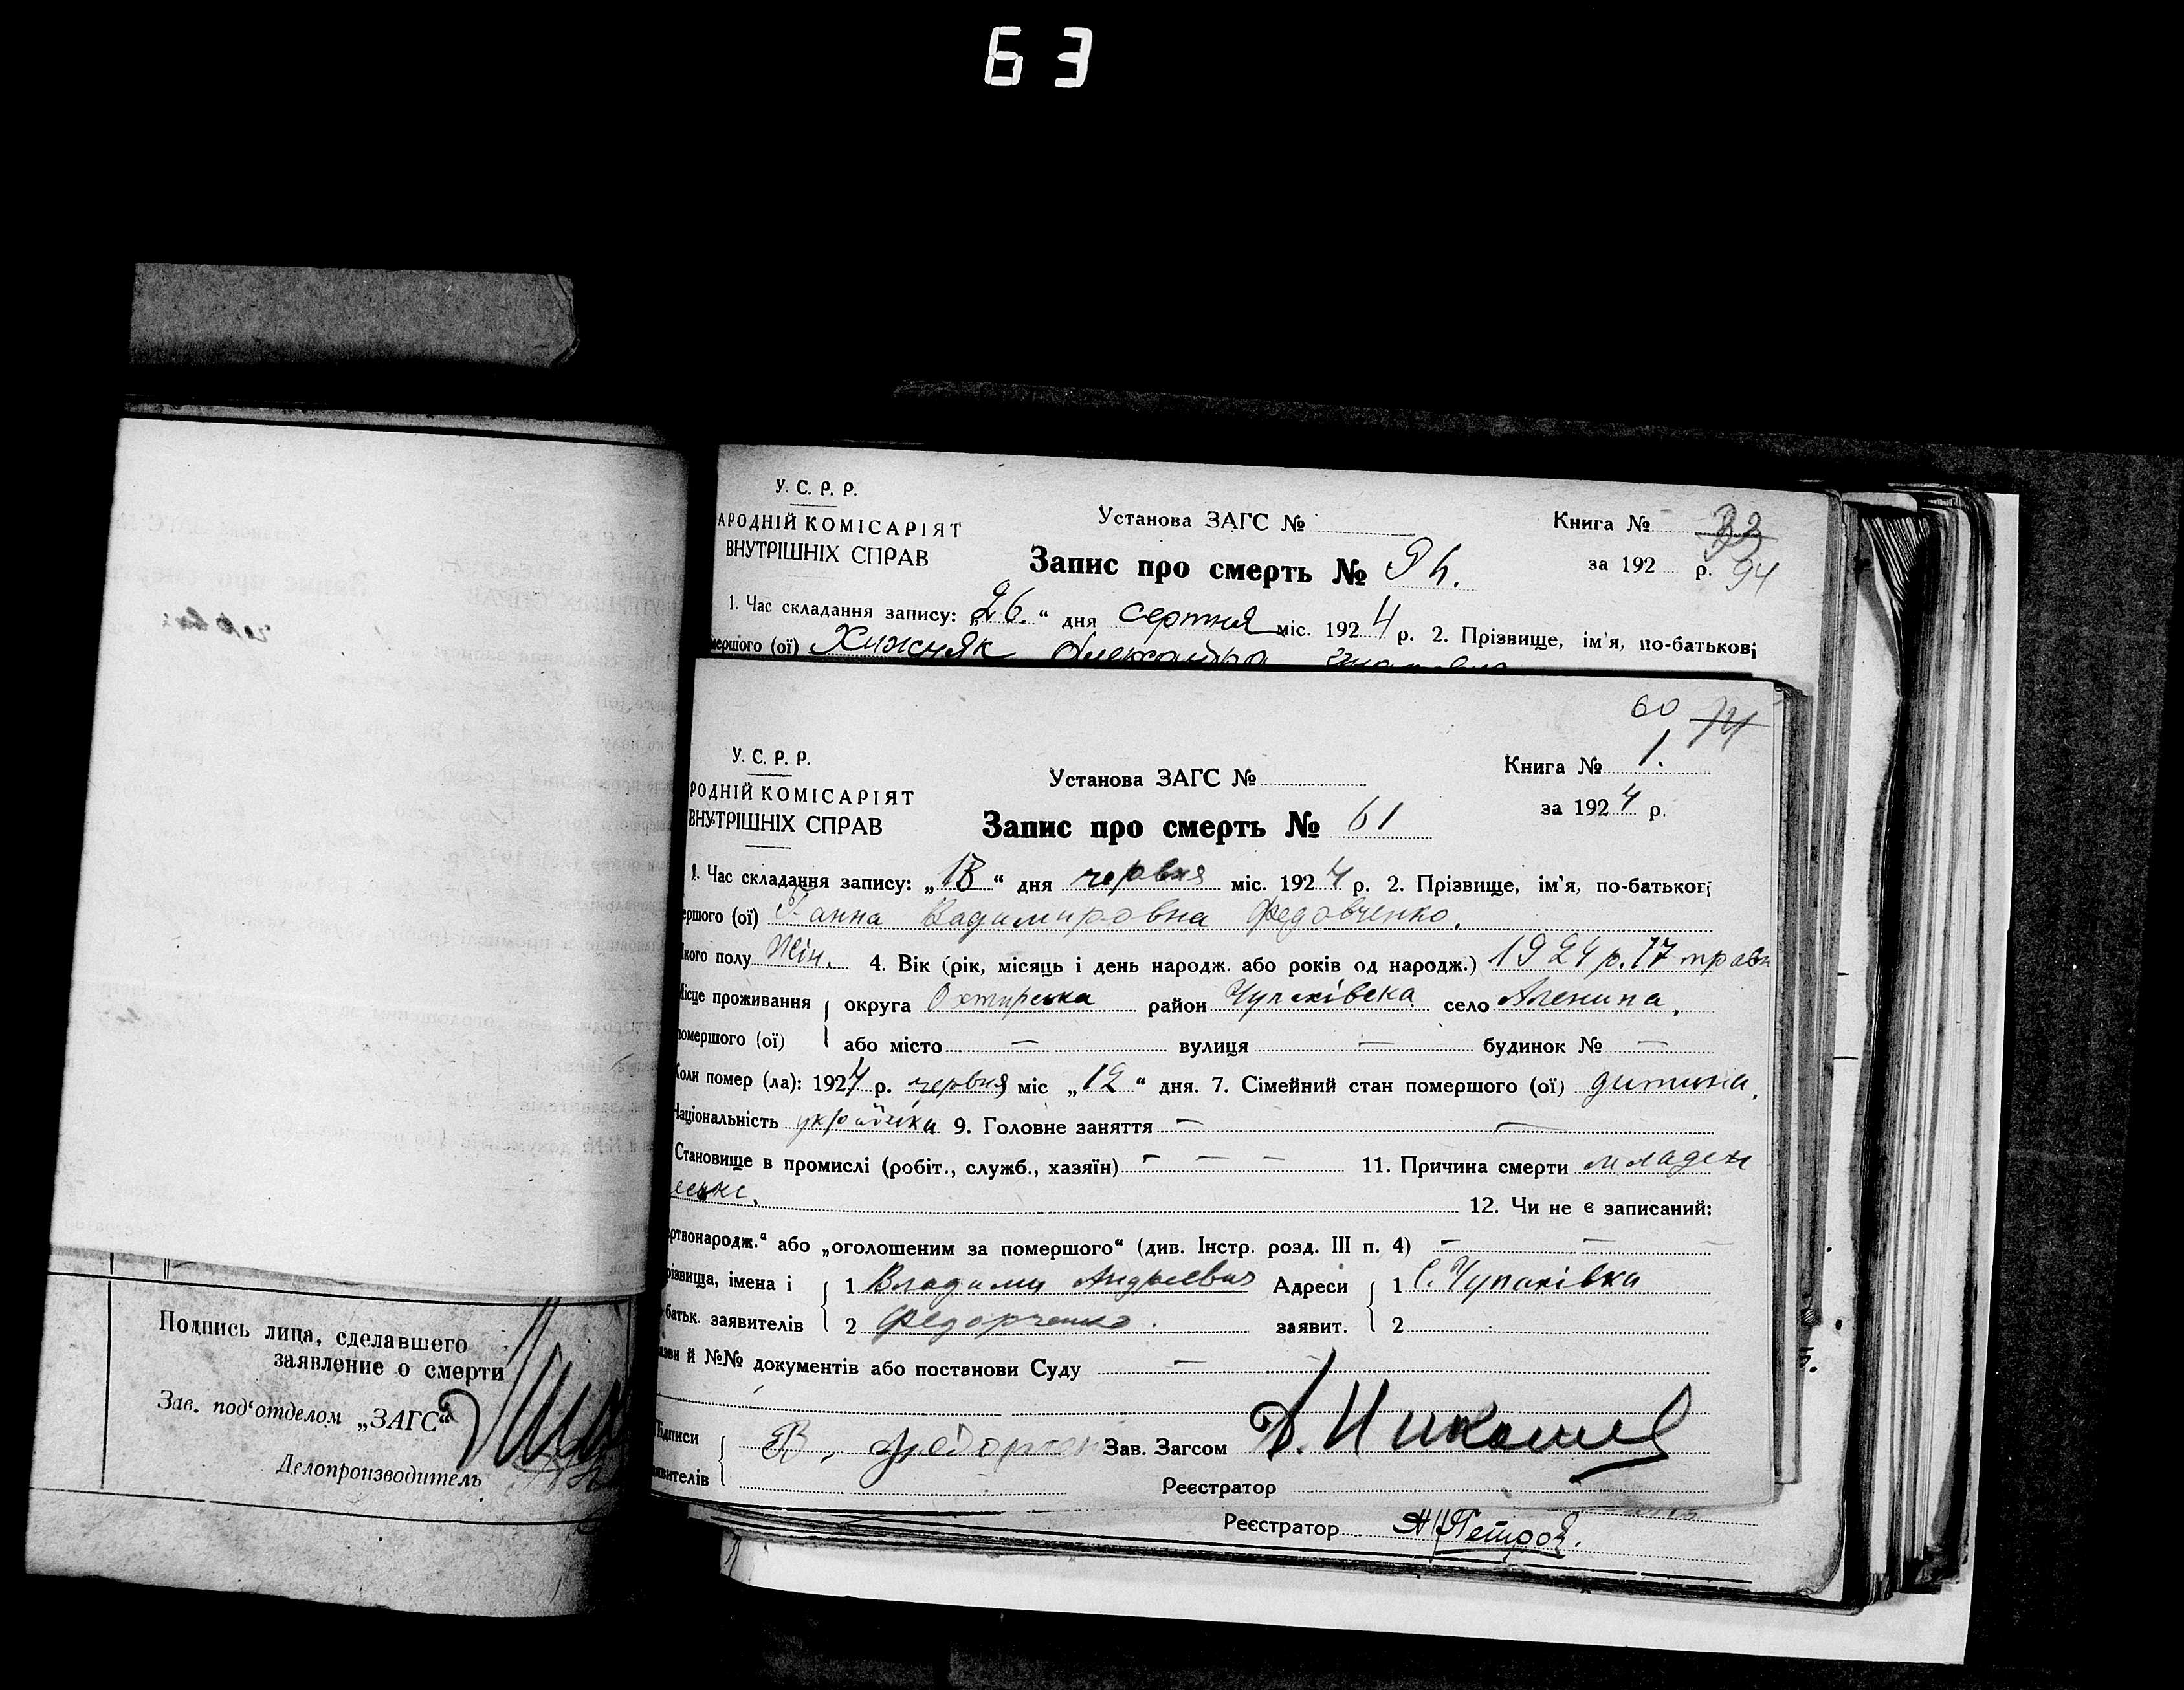 63
У. С. Р. Р.
АРОДНІЙ КОМІСАРІЯТ
ВНУТРІШНІХ СПРАВ
Установа ЗАГС №
Книга № 33
Запис про смерть № 94.
за 192 р. 94
1. Час складання запису: „26.“ дня серпня міс. 1924 р. 2. Прізвище, ім'я, по-батькові
мершого (ої) Хижняк Олександра
60 74
У. С. Р. Р.
РОДНІЙ КОМІСАРІЯТ
ВНУТРІШНІХ СПРАВ
Установа ЗАГС №
Книга № 1.
Запис про смерть № 61
за 1924 р.
1. Час складання запису: „13“ дня червня міс. 1924 р. 2. Прізвище, ім'я, по-батькові
ершого (ої) Ганна Вадимировна Федовченко.
якого полу Жін. 4. Вік (рік, місяць і день народж. або років од народж.) 1924 р. 17 травн
Місце проживання округа Охтирська район Чупахівська село Аленина.
помершого (ої) або місто — вулиця — будинок № —
Коли помер (ла): 1924 р. червня міс „12“ дня. 7. Сімейний стан помершого (ої) дитина.
Національність українка 9. Головне заняття — —
Становище в промислі (робіт., служб., хазяїн) — — — 11. Причина смерти младен
еське. 12. Чи не є записаний:
ртвонародж.“ або „оголошеним за помершого“ (див. Інстр. розд. III п. 4) — — —
різвища, імена і 1 Владими Андреевич Адреси 1 С. Чупахівка
батьк. заявителів 2 Федорченко. заявит. 2
азви й №№ документів або постанови Суду —
Підписи В. Федорчен Зав. Загсом
аявителів Реєстратор
Реєстратор Петров.
Подпись лица, сделавшего
заявление о смерти
Зав. под'отделом „ЗАГС“
Делопроизводитель